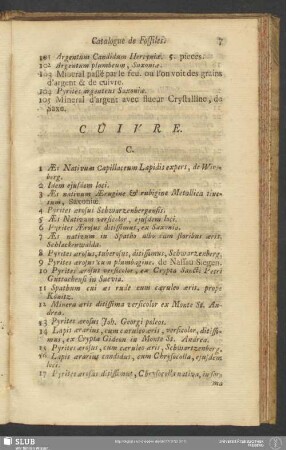 Catalogue de Fossiles. 7
101 Argentum Candidum Hercyniæ. 5. pieces.
102 Argentum plumbeum, Saxoniæ.
103 Mineral passé par le feu, ou l'on voit des grains
d'argent & de cuivre.
104 Pyrites argenteus Saxoniæ.
105 Mineral d'argent avec flueur Crystalline, de
Saxe.
CUIVRE.
C.
1 Æs Nativum Capillaceum Lapidis expert, de
berg.
2 Idem ejusdem loci.
3 Æs nativum Ærugine & rubigine Metallica tinc-
tum, Saxoniæ.
4 Pyrites ærosus Schwartzenbergensis.
5 Æs Nativum versicolor, ejusdem loci.
6 Pyrites Ærosus ditissimus, ex Saxonia.
7 Æs nativum in Spatho albo cum floribus æris.
Schlackenwalda.
8 Pyrites ærosus, tuberosus, ditissimus, Schwartzenberg.
9 Pyrites ærosus cum plumbagine, de Nassau Siegen.
10 Pyrites ærosus versicolor, ex Crypta Sancti Petri
in Suevia.
11 Spathum cui æs rude cum cæruleo æris, prope
12 Minera æris ditissima versicolor ex Monte St. An-
drea.
13 Pyrites ærosus Joh. Georgi polens.
14 Lapis ærarius, cum cæruleo æris, versicolor, ditissi-
mus, ex Crypta Gideon in Monte St. Andrea.
15 Pyrites ærosus, cum cæruleo æris, Schwartzenberg.
16 Lapis ærarius candidus, cum Chrysocolla, ejusdem
loci.
17 Pyrites ærosus ditissimus, Chrysocolla nativa,
SLUB